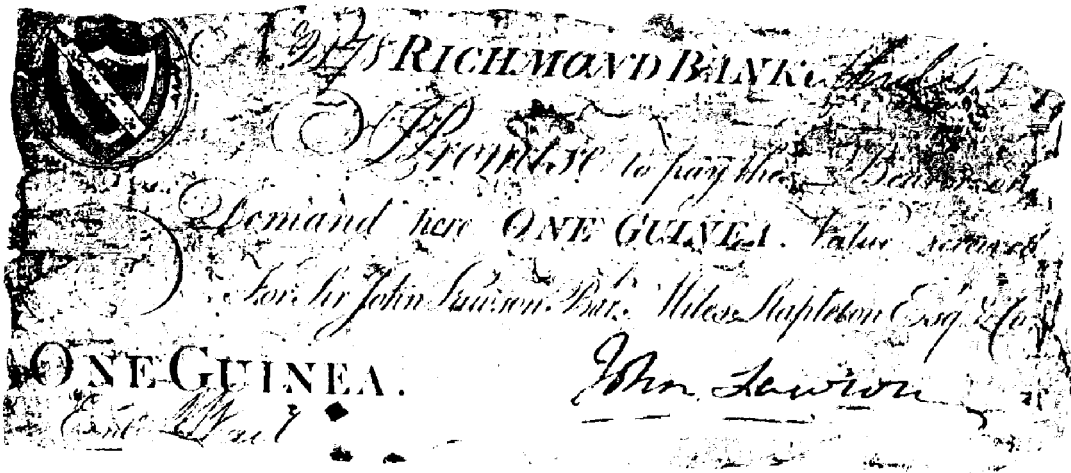 RICHMOND BANK
I Promise to pay the Bearer on
Demand here ONE GUINEA. Value received
For Sir John Lawson Bart. Miles Stapleton Esqr. & Co.
ONE GUINEA. John Lawson
Entd.